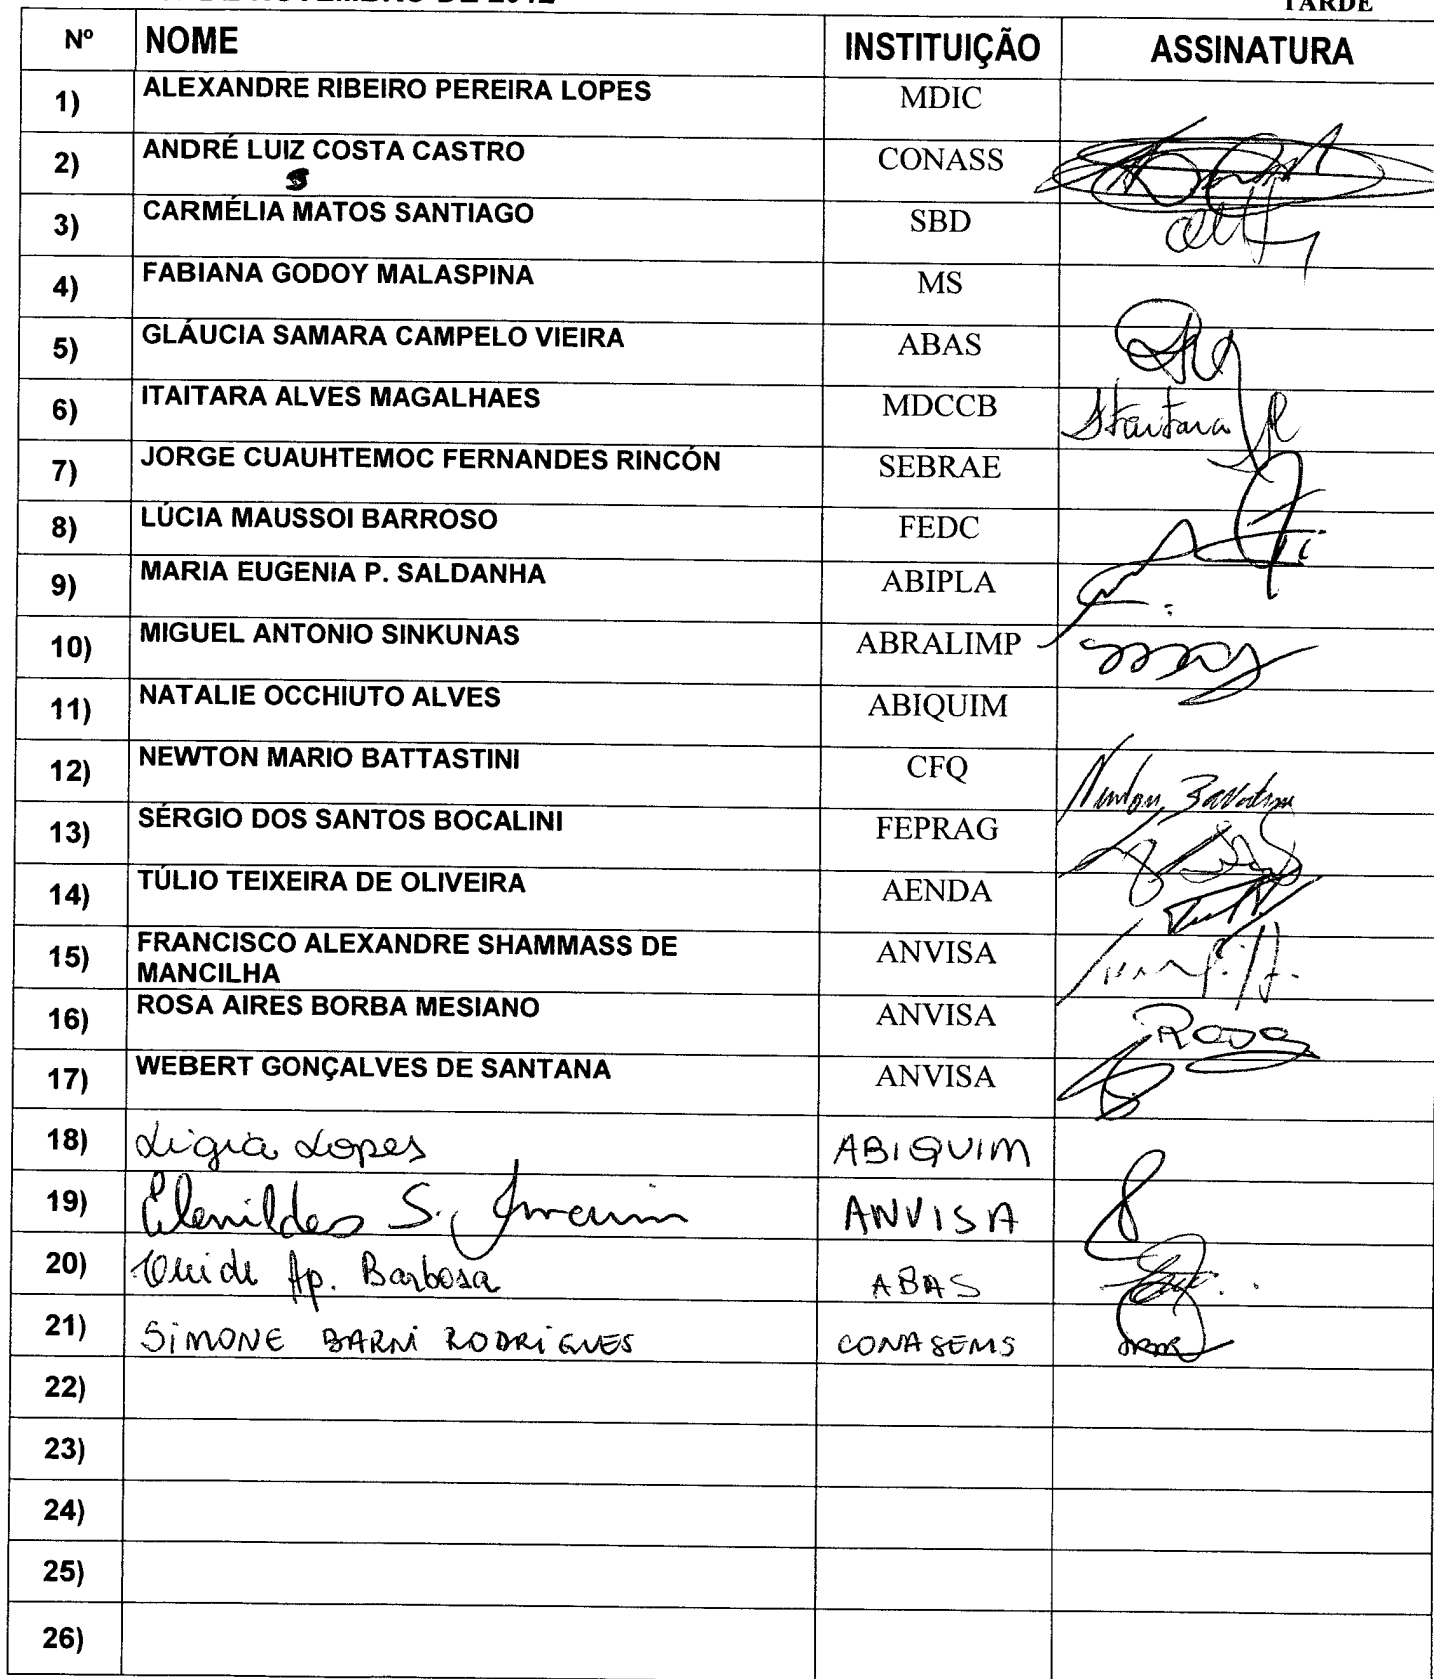 DE NOVEMBRO DE 2012
TARDE
Nº NOME INSTITUIÇÃO ASSINATURA
1) ALEXANDRE RIBEIRO PEREIRA LOPES MDIC
2) ANDRÉ LUIZ COSTA CASTRO CONASS
S
3) CARMÉLIA MATOS SANTIAGO SBD
4) FABIANA GODOY MALASPINA MS
5) GLÁUCIA SAMARA CAMPELO VIEIRA ABAS
6) ITAITARA ALVES MAGALHAES MDCCB Itaitara
7) JORGE CUAUHTEMOC FERNANDES RINCÓN SEBRAE
8) LÚCIA MAUSSOI BARROSO FEDC
9) MARIA EUGENIA P. SALDANHA ABIPLA
10) MIGUEL ANTONIO SINKUNAS ABRALIMP
11) NATALIE OCCHIUTO ALVES ABIQUIM
12) NEWTON MARIO BATTASTINI CFQ Newton Battastini
13) SÉRGIO DOS SANTOS BOCALINI FEPRAG
14) TÚLIO TEIXEIRA DE OLIVEIRA AENDA
15) FRANCISCO ALEXANDRE SHAMMASS DE
MANCILHA ANVISA
16) ROSA AIRES BORBA MESIANO ANVISA Rosa
17) WEBERT GONÇALVES DE SANTANA ANVISA
18) Ligia Lopes ABIQUIM
19) Elenildes S. ANVISA
20) Ap. Barbosa ABAS
21) SIMONE BARNI RODRIGUES CONASEMS
22)
23)
24)
25)
26)